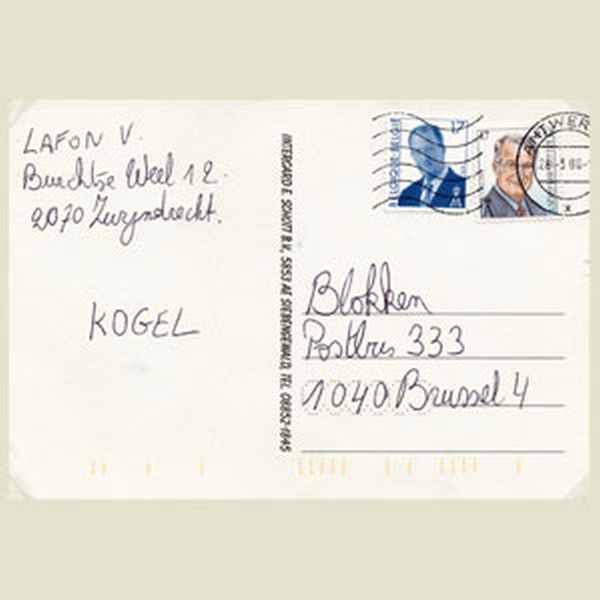 LAFON V.
Burchtse Weel 12.
2070 Zwyndrecht.
KOGEL
INTERCARD E. SCHUTT B.V., 5853 AE SIEBENGEWALD, TEL. 08852-1845
BELGIQUE-BELGIË
17
17
ANTWER
Blokken
Postbus 333
1040 Brussel 4